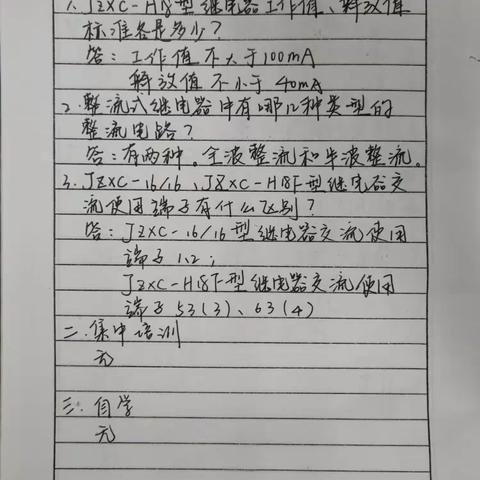 1. JZXC-H18型继电器工作值、释放值
标准各是多少？
答：工作值不大于100mA
释放值不小于40mA
2. 整流式继电器中有哪几种类型的
整流电路？
答：有两种。全波整流和半波整流。
3. JZXC-16/16、JZXC-H18F型继电器交
流使用端子有什么区别？
答：JZXC-16/16型继电器交流使用
端子1.2；
JZXC-H18F型继电器交流使用
端子53(3)、63(4)
二.集中培训
无
三.自学
无